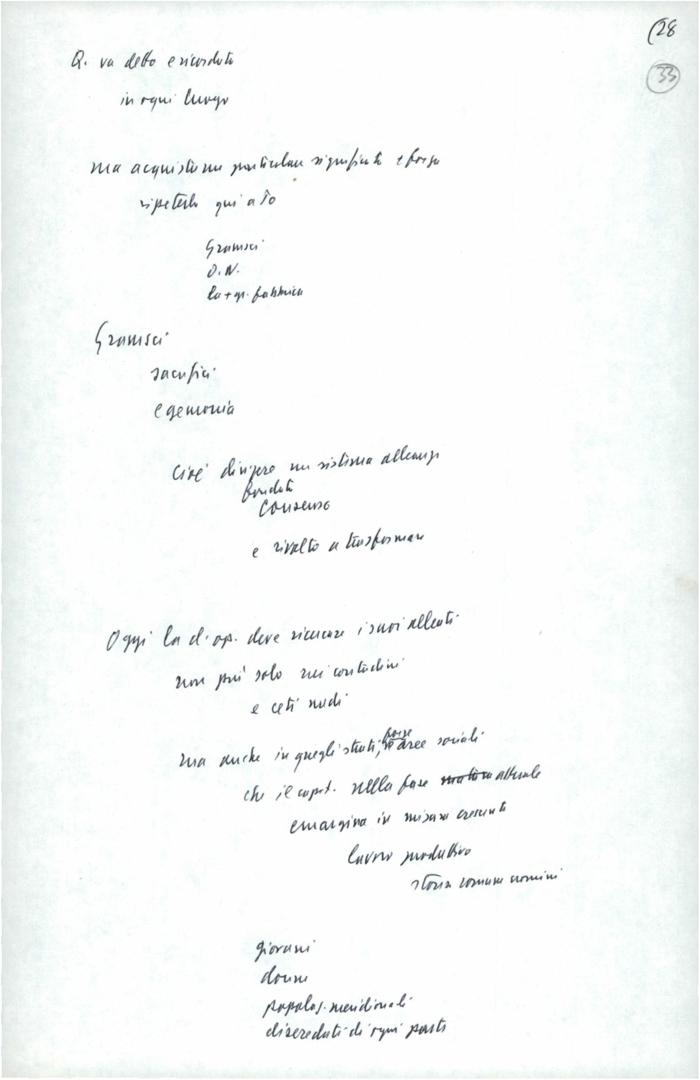 (28
33
Q. va detto e ricordato
in ogni luogo
ma acquista un particolare significato e forza
ripeterlo qui a To
Gramsci
O.N.
la + gr. fabbrica
Gramsci
sacrifici
egemonia
cioè dirigere un sistema alleanze
fondato
consenso
e rivolto a trasformare
Oggi la cl. op. deve ricercare i suoi alleati
non più solo nei contadini
e ceti medi
ma anche in quegli strati, forze aree sociali
che il capit. nella fase attuale
emargina in misura crescente
lavoro produttivo
storia comune uomini
giovani
donne
popolaz. meridionali
diseredati di ogni parte